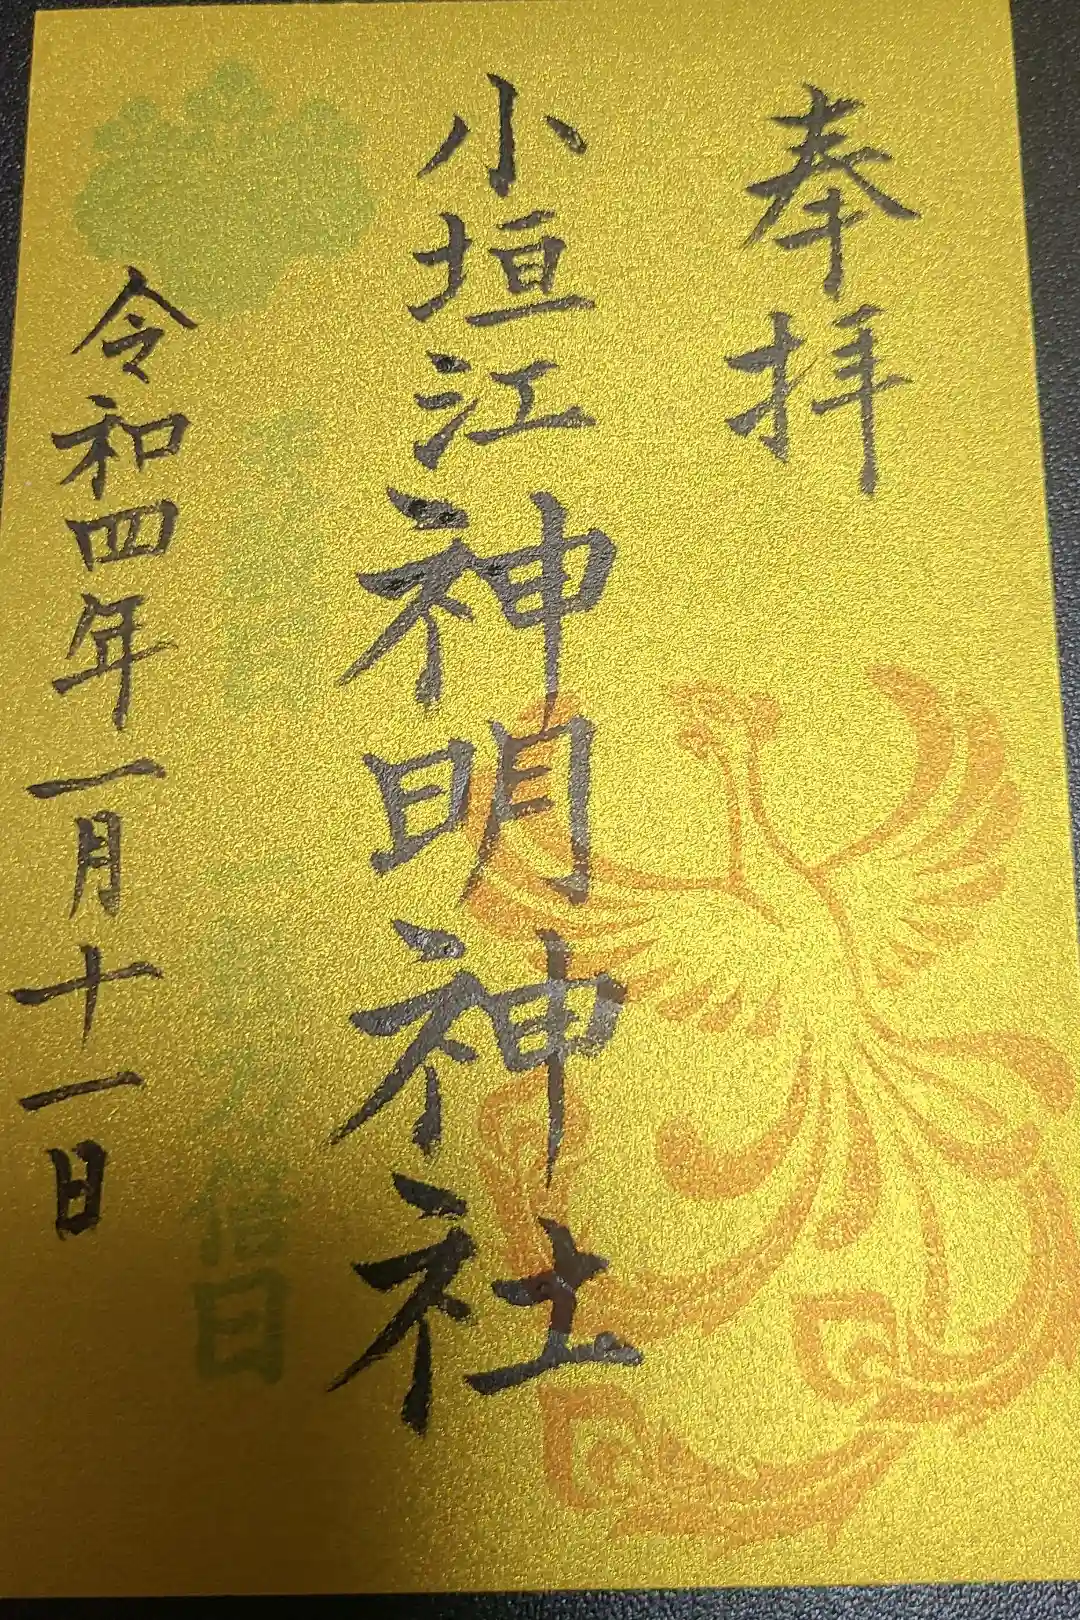 奉拝
小垣江神明神社
令和四年一月十一日
倍日